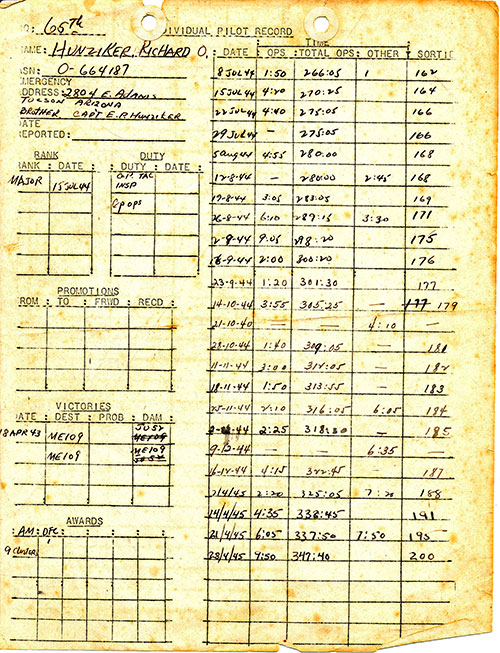 NO: 65th INDIVIDUAL PILOT RECORD
NAME: HUNZIKER, RICHARD O.
ASN: O-664187
EMERGENCY
ADDRESS: 2804 E. ADAMS
TUCSON ARIZONA
BROTHER CAPT E.P. HUNZIKER
DATE
REPORTED:
RANK DUTY
RANK : DATE : : DUTY : DATE :
MAJOR 15 JUL 44 GP. TAC INSP
Gp ops
PROMOTIONS
FROM : TO : FRWD : RECD :
VICTORIES
DATE : DEST : PROB : DAM :
18 APR 43 ME109 JU52
ME109 ME109
AWARDS
: AM: DFC:
9 cluster 1
TIME
: DATE : OPS :TOTAL OPS: OTHER : SORTIE
8 JUL 44 1:50 266:05 1 162
15 JUL 44 4:20 270:25 164
22 JUL 44 4:40 275:05 166
29 JUL 44 — 275:05 166
5 aug 44 4:55 280:00 168
12-8-44 — 280:00 2:45 168
19-8-44 3:05 283:05 169
26-8-44 6:10 289:15 3:30 171
2-9-44 9:05 298:20 175
16-9-44 2:00 300:20 176
23-9-44 1:20 301:30 177
14-10-44 3:55 305:25 — 177 179
21-10-40 — — 4:10 —
28-10-44 1:40 309:05 — 181
11-11-44 3:00 312:05 — 182
18-11-44 1:50 313:55 — 183
25-11-44 2:10 316:05 6:05 184
44 2:25 318:30 — 185
9-12-44 — 6:35 —
16-12-44 4:15 322:45 187
7/4/45 2:20 325:05 7:20 188
14/4/45 4:35 338:45 191
21/4/45 6:05 337:50 7:50 195
28/4/45 9:50 347:40 200